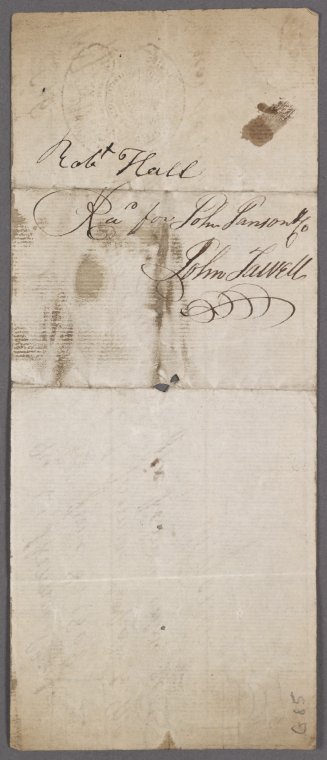 Robt Hall
Rd for John Sanson & Co
John Tawell
G 85